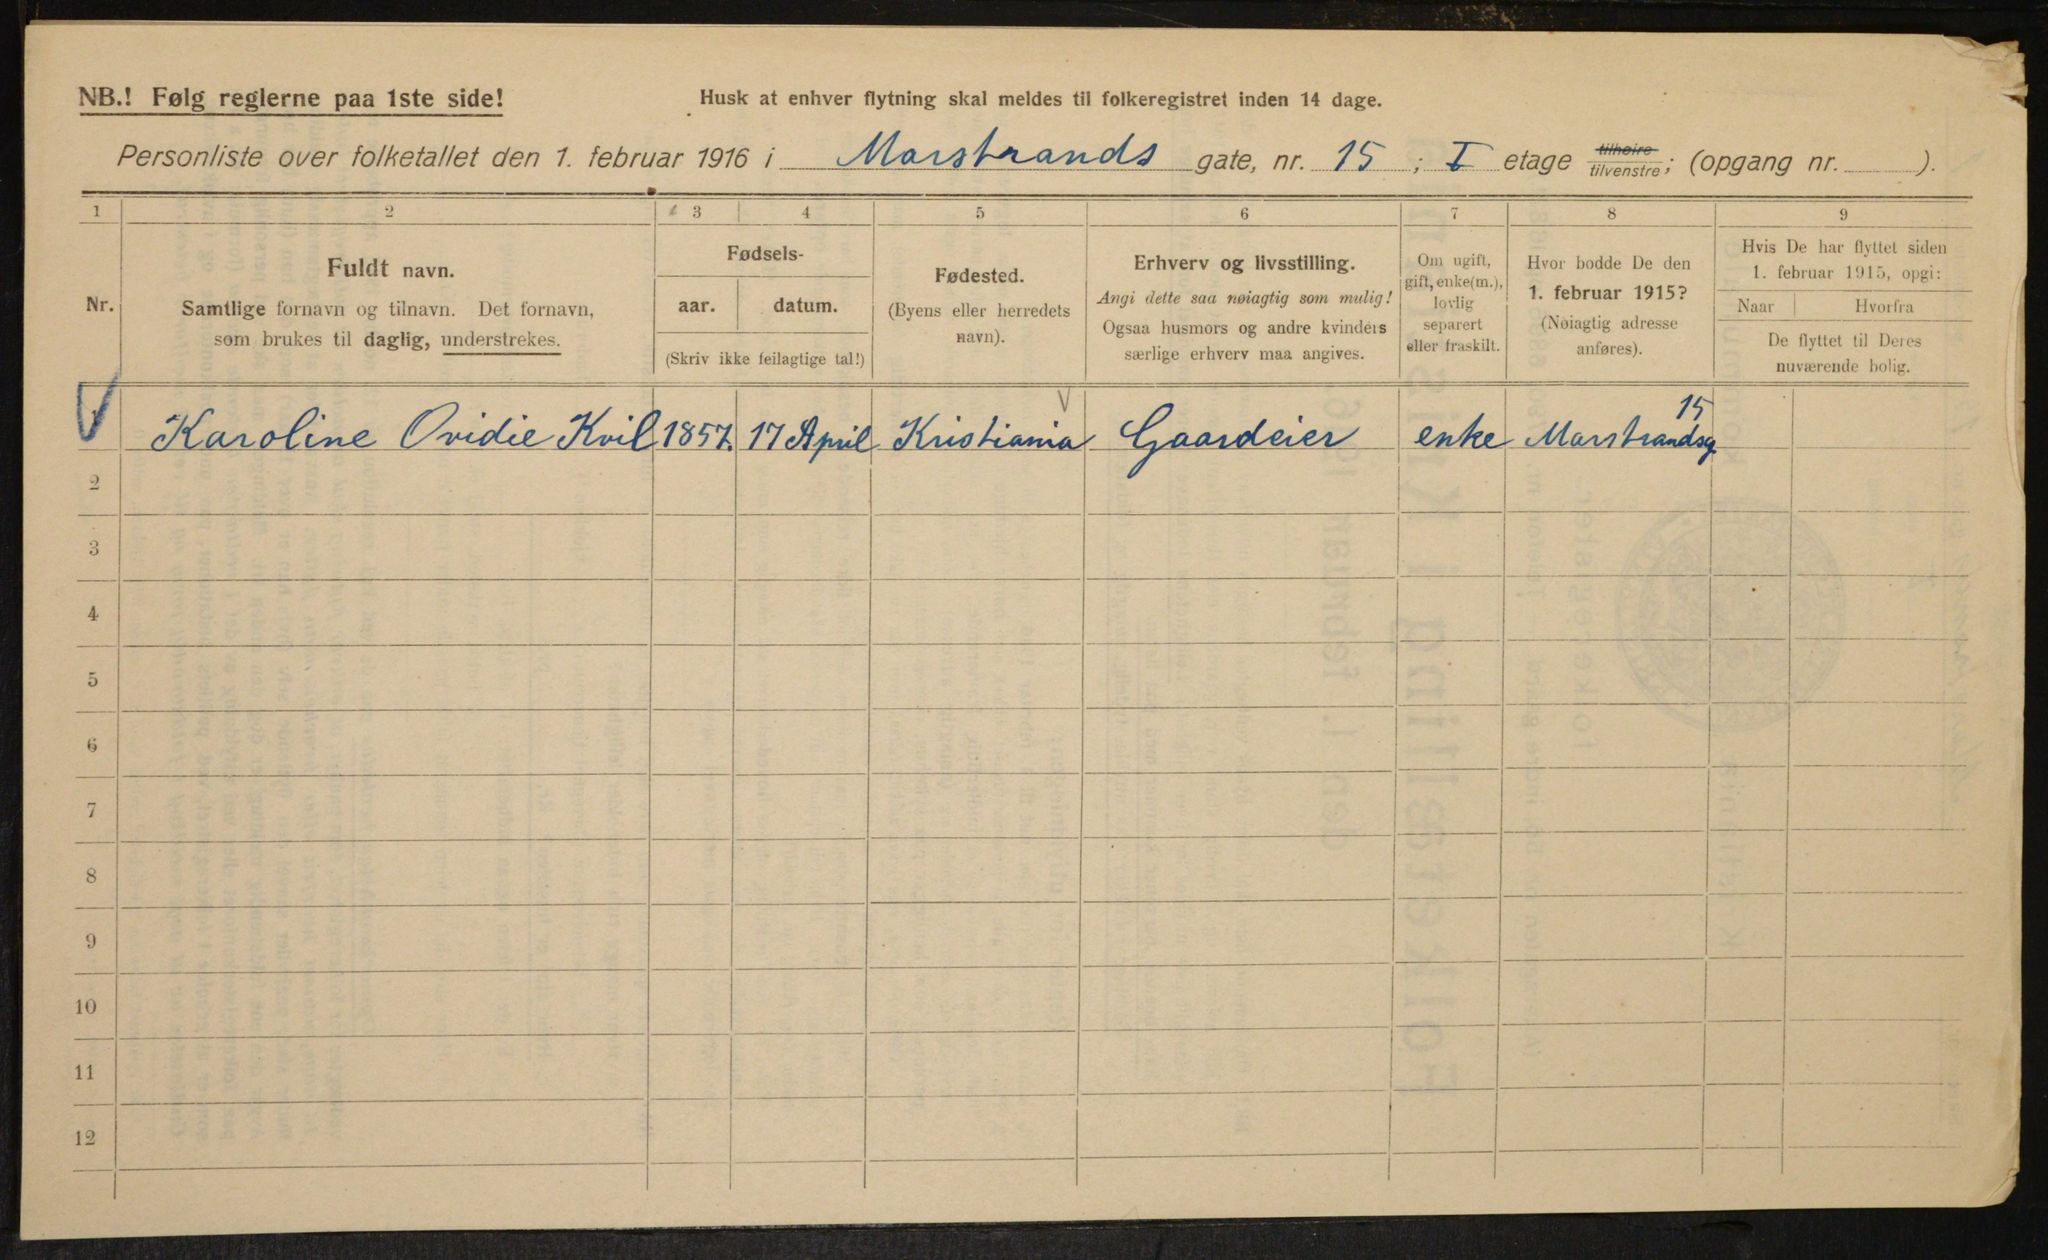 NB.! Følg reglerne paa 1ste side!
Husk at enhver flytning skal meldes til folkeregistret inden 14 dage.
Personliste over folketallet den 1. februar 1916 i Marstrands gate, nr. 15; I etage tilhøire/tilvenstre; (opgang nr. ).
1 2 3 4 5 6 7 8 9
Nr.
Fuldt navn.
Samtlige fornavn og tilnavn. Det fornavn,
som brukes til daglig, understrekes.
Fødsels-
aar. datum.
(Skriv ikke feilagtige tal!)
Fødested.
(Byens eller herredets
navn).
Erhverv og livsstilling.
Angi dette saa nøiagtig som mulig!
Ogsaa husmors og andre kvinders
særlige erhverv maa angives.
Om ugift,
gift, enke(m.),
lovlig
separert
eller fraskilt.
Hvor bodde De den
1. februar 1915?
(Nøiagtig adresse
anføres).
Hvis De har flyttet siden
1. februar 1915, opgi:
Naar Hvorfra
De flyttet til Deres
nuværende bolig.
1 Karoline Ovidie Kvil 1857. 17 April Kristiania Gaardeier enke Marstrandsg. 15
2
3
4
5
6
7
8
9
10
11
12